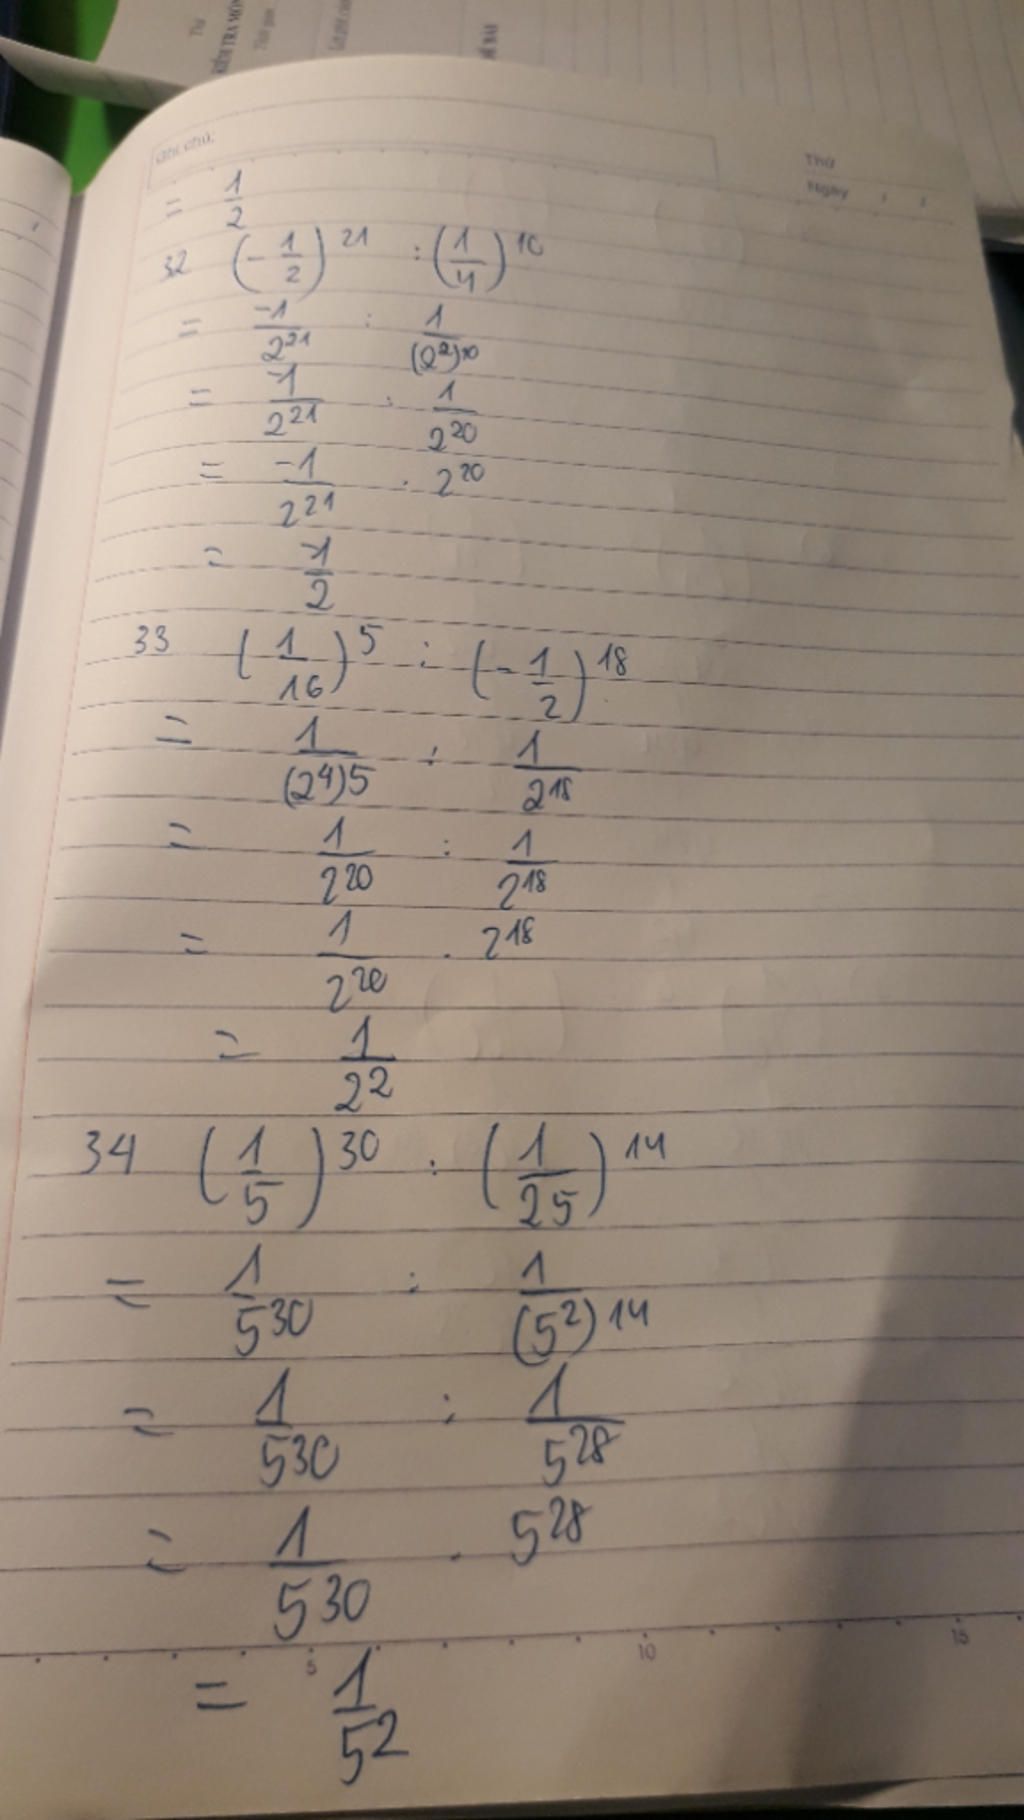 Thứ
KIỂM TRA MÔN
Thời gian
ĐỀ BÀI
Ghi chú:
Thứ
Ngày , ,
= 1/2
32 (-1/2)^21 : (1/4)^10
= -1/2^21 : 1/(2^2)^10
= -1/2^21 : 1/2^20
= -1/2^21 . 2^20
= -1/2
33 (1/16)^5 : (-1/2)^18
= 1/(2^4)^5 : 1/2^18
= 1/2^20 : 1/2^18
= 1/2^20 . 2^18
= 1/2^2
34 (1/5)^30 : (1/25)^14
= 1/5^30 : 1/(5^2)^14
= 1/5^30 : 1/5^28
= 1/5^30 . 5^28
5 10 15
= 1/5^2